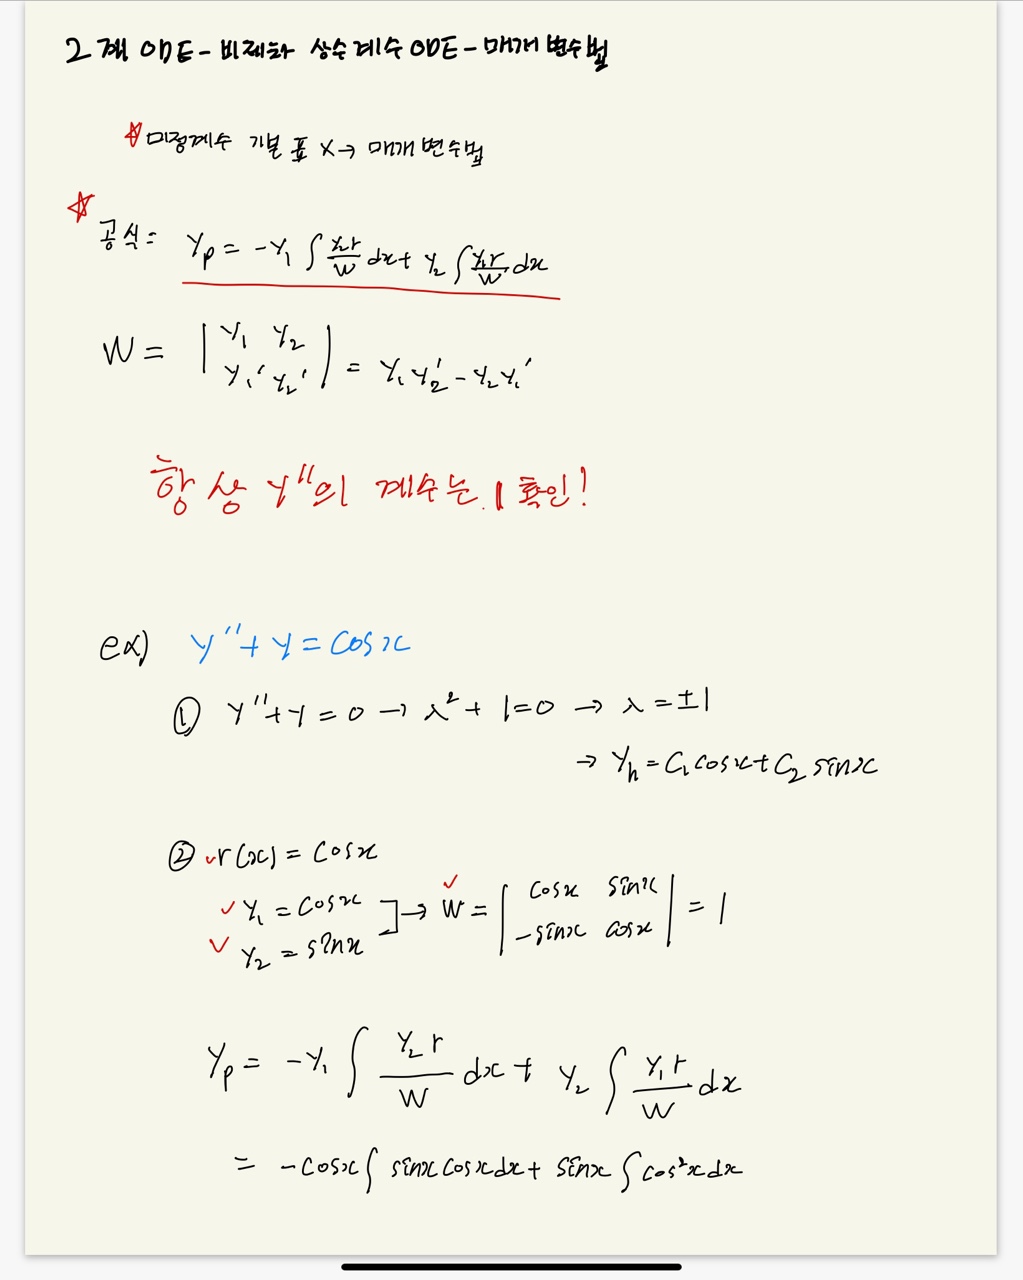 2계 ODE - 비제차 상수계수 ODE - 매개변수법
☆미정계수 기본 표 X → 매개변수법
☆
공식 = yp = -y₁ ∫ y₂r/W dx + y₂ ∫ y₁r/W dx
W = | y₁ y₂ |
| y₁' y₂' | = y₁y₂' - y₂y₁'
항상 y''의 계수는 1 확인!
ex) y'' + y = cosx
① y'' + y = 0 → λ² + 1 = 0 → λ = ±1
→ yh = C₁cosx + C₂ sinx
② ✓r(x) = cosx
✓ y₁ = cosx
✓ y₂ = sinx ] → ✓ W = | cosx sinx |
| -sinx cosx | = 1
yp = -y₁ ∫ y₂r/W dx + y₂ ∫ y₁r/W dx
= -cosx ∫ sinx cosx dx + sinx ∫ cos²x dx